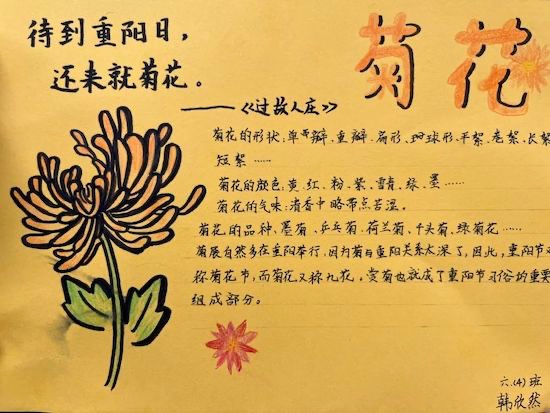 待到重阳日，
还来就菊花。
——《过故人庄》
菊花
菊花的形状：单瓣、重瓣、扁形、球形、平絮、卷絮、长絮
短絮……
菊花的颜色：黄、红、粉、紫、雪青、绿、墨……
菊花的气味：清香中略带点苦涩。
菊花的品种：墨菊、乒乓菊、荷兰菊、千头菊、绿菊花……
菊展自然多在重阳举行，因为菊与重阳关系太深了，因此，重阳节又
称菊花节，而菊花又称九花。赏菊也就成了重阳节习俗的重要
组成部分。
六.(4)班
韩欣然